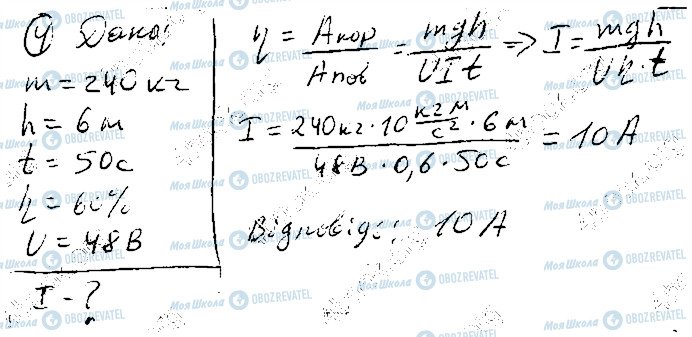 ④ Дано:
m = 240 кг
h = 6 м
t = 50 с
η = 60%
U = 48 В
I - ?
η = Aкор / Aпов = mgh / UIt => I = mgh / Uη·t
I = 240 кг · 10 кг м / с² · 6 м / 48 В · 0,6 · 50 с = 10 А
Відповідь: 10 А
Моя Школа OBOZREVATEL